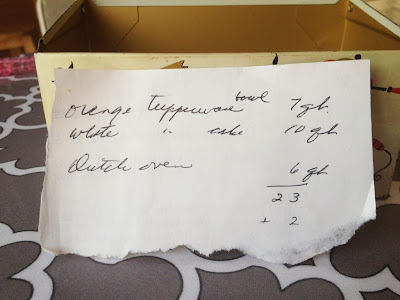 orange Tupperware bowl 7 qts.
white " cake 10 qts
Dutch oven 6 qts
23
+ 2